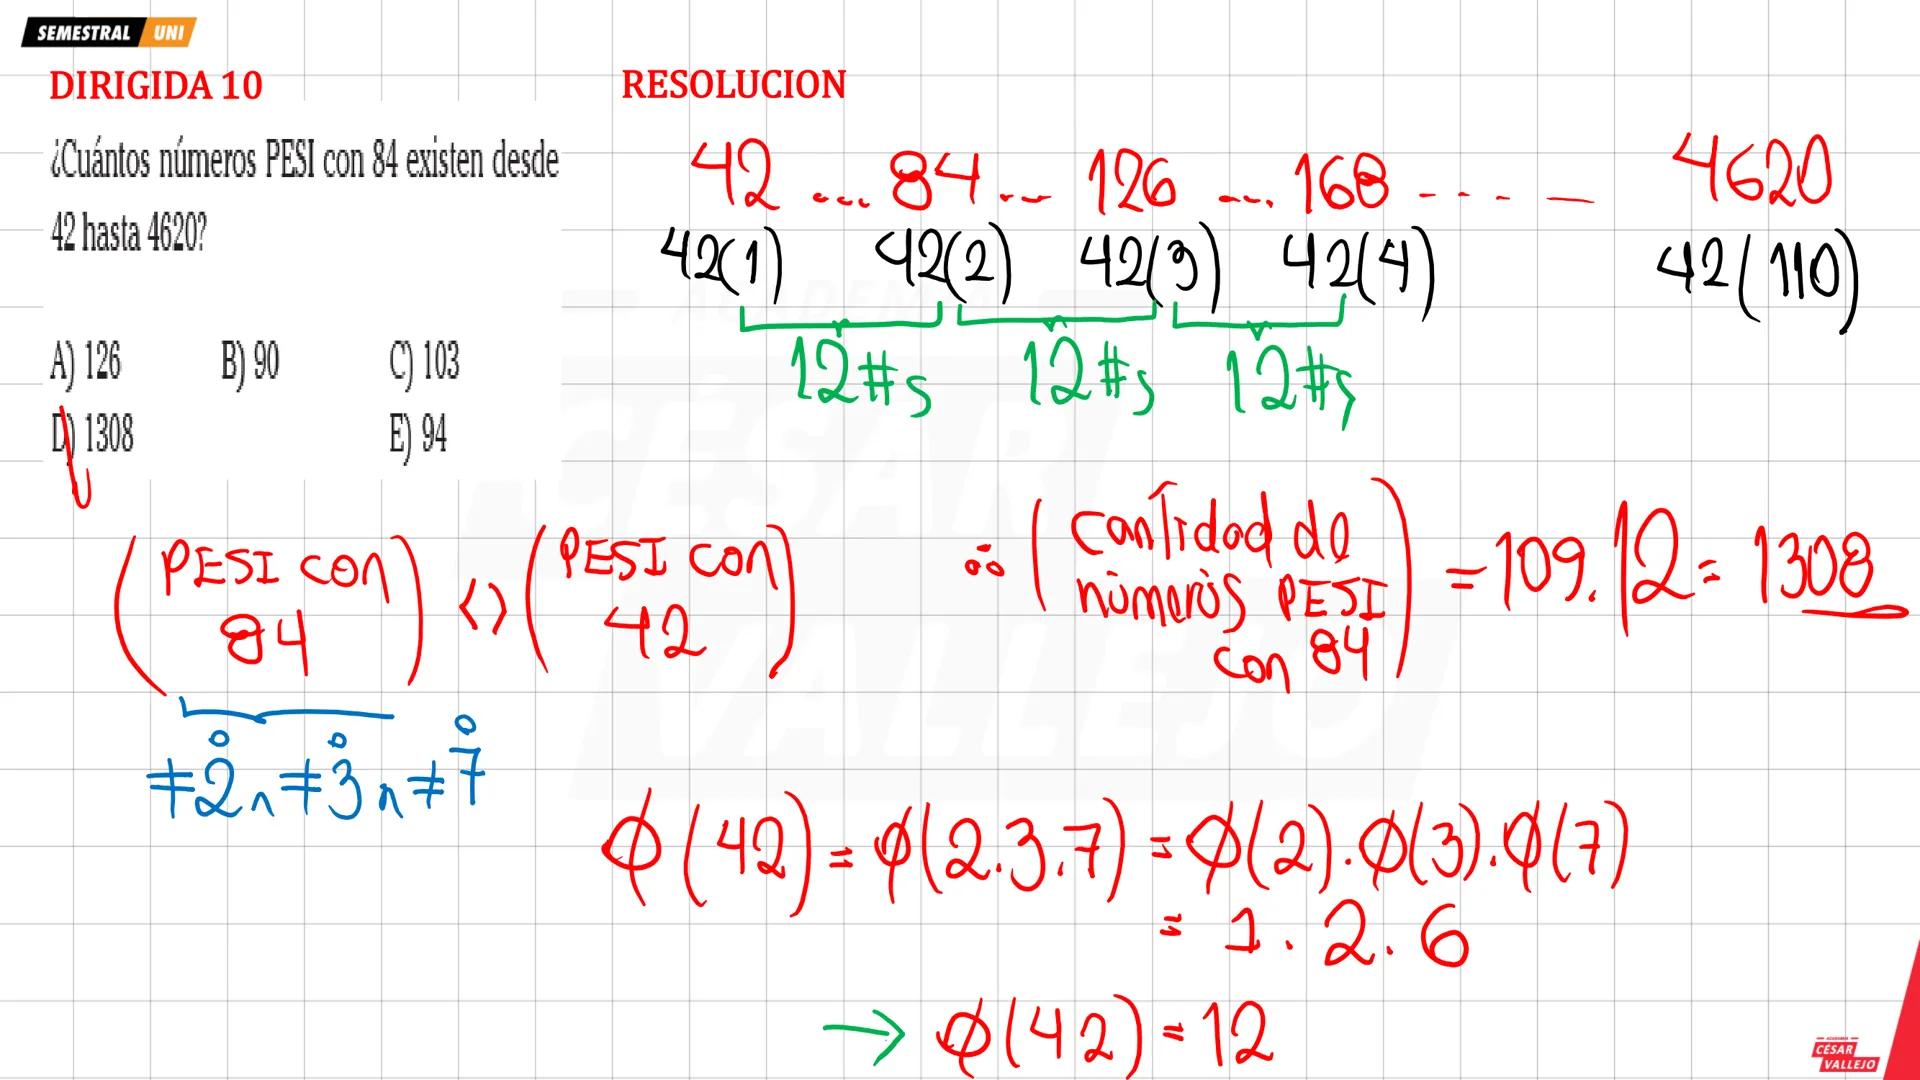 SEMESTRAL UNI
DIRIGIDA 10
¿Cuántos números PESI con 84 existen desde
42 hasta 4620?
A) 126 B) 90 C) 103
D) 1308 E) 94
RESOLUCION
42 ... 84 ... 126 ... 168 ---- 4620
42(1) 42(2) 42(3) 42(4) 42(110)
12#s 12#s 12#s
(PESI con 84) <> (PESI con 42)
≠2° ∧ ≠3° ∧ ≠7°
∴ (cantidad de números PESI con 84) = 109.12 = 1308
ϕ(42) = ϕ(2.3.7) = ϕ(2).ϕ(3).ϕ(7)
= 1.2.6
→ ϕ(42) = 12
ACADEMIA
CÉSAR
VALLEJO
ACADEMIA
CÉSAR
VALLEJO